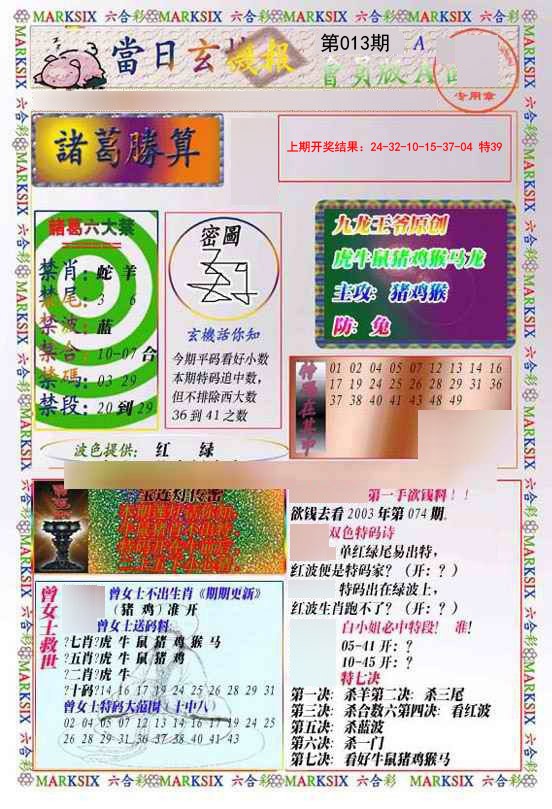 MARKSIX 六合彩 MARKSIX 六合彩 MARKSIX 六合彩 MARKSIX 六合彩
當日玄機報
第013期
A
會員版A
专用章
諸葛勝算
上期开奖结果: 24-32-10-15-37-04 特39
諸葛六大禁
禁肖: 蛇 羊
禁尾: 3 6
禁波: 蓝
禁合: 10-07 合
禁碼: 03 29
禁段: 20 到 29
密圖
玄機話你知
今期平码看好小数
本期特码追中数,
但不排除西大数
36 到 41 之数
九龙王爷原创
虎牛鼠猪鸡猴马龙
主攻: 猪鸡猴
防: 兔
特碼在其中
01 02 04 05 07 12 13 14 16
17 19 24 25 26 28 29 31 36
37 38 40 41 43 48 49
波色提供: 红 绿
第一手欲钱料!!
欲钱去看 2003 年第 074 期.
双色特码诗
单红绿尾易出特,
红波便是特码家? (开: ?)
特码出在绿波上,
红波生肖跑不了? (开: ?)
白小姐必中特段! 准!
05-41 开: ?
10-45 开: ?
特七决
第一决: 杀羊第二决: 杀三尾
第三决: 杀合数六第四决: 看红波
第五决: 杀蓝波
第六决: 杀一门
第七决: 看好牛鼠猪鸡猴马
曾女士救世
曾女士不出生肖《期期更新》
(猪 鸡) 准 开
曾女士送码料
?七肖?虎 牛 鼠 猪 鸡 猴 马
?五肖?虎 牛 鼠 猪 鸡
?二肖?虎 牛
?十码?14 16 17 19 24 25 26 28 29 31
曾女士特码大范围 (十中八)
02 04 05 07 12 13 14 16 17 19 24 25
26 28 29 31 36 37 38 40 41 43
MARKSIX 六合彩 MARKSIX 六合彩 MARKSIX 六合彩 MARKSIX 六合彩